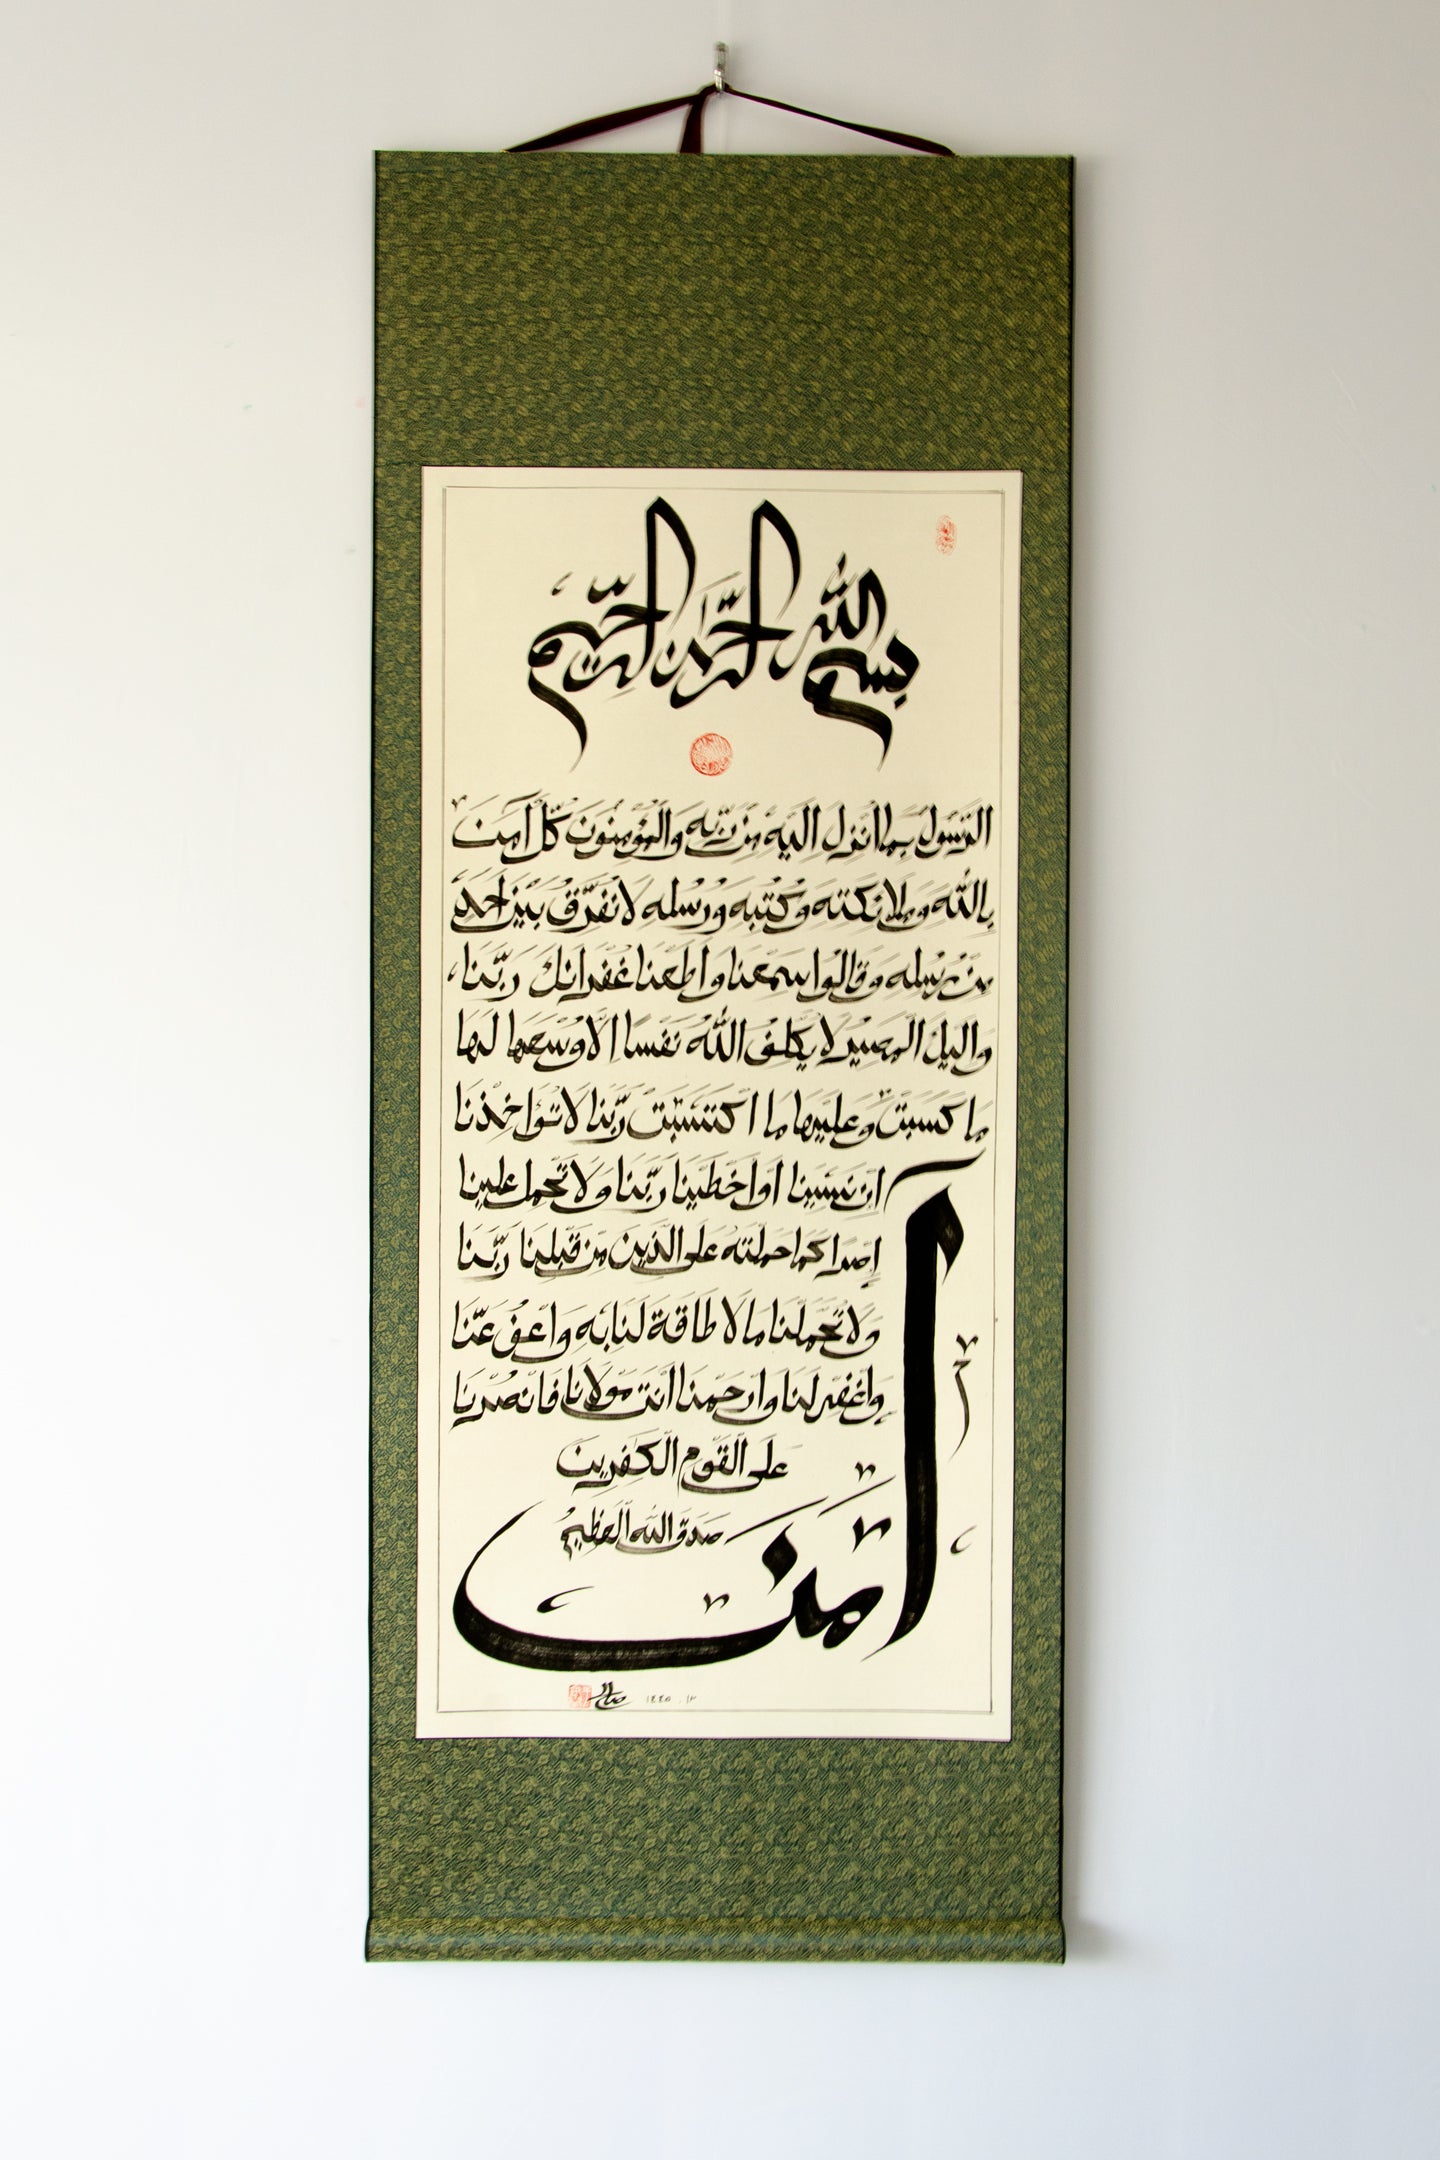 بسم الله الرحمن الرحيم
الرَّسُولُ بِمَا أُنْزِلَ إِلَيْهِ مِنْ رَبِّهِ وَالْمُؤْمِنُونَ كُلٌّ آمَنَ
بِاللّٰهِ وَمَلَائِكَتِهِ وَكُتُبِهِ وَرُسُلِهِ لَا نُفَرِّقُ بَيْنَ أَحَدٍ
مِنْ رُسُلِهِ وَقَالُوا سَمِعْنَا وَأَطَعْنَا غُفْرَانَكَ رَبَّنَا
وَإِلَيْكَ الْمَصِيرُ لَا يُكَلِّفُ اللّٰهُ نَفْسًا إِلَّا وُسْعَهَا لَهَا
مَا كَسَبَتْ وَعَلَيْهَا مَا اكْتَسَبَتْ رَبَّنَا لَا تُؤَاخِذْنَا
إِنْ نَسِينَا أَوْ أَخْطَيْنَا رَبَّنَا وَلَا تَحْمِلْ عَلَيْنَا
إِصْرًا كَمَا حَمَلْتَهُ عَلَى الَّذِينَ مِنْ قَبْلِنَا رَبَّنَا
وَلَا تُحَمِّلْنَا مَا لَا طَاقَةَ لَنَا بِهِ وَاعْفُ عَنَّا
وَاغْفِرْ لَنَا وَارْحَمْنَا أَنْتَ مَوْلَانَا فَانْصُرْنَا
عَلَى الْقَوْمِ الْكٰفِرِينَ
صدق الله العظيم
آمَنَ